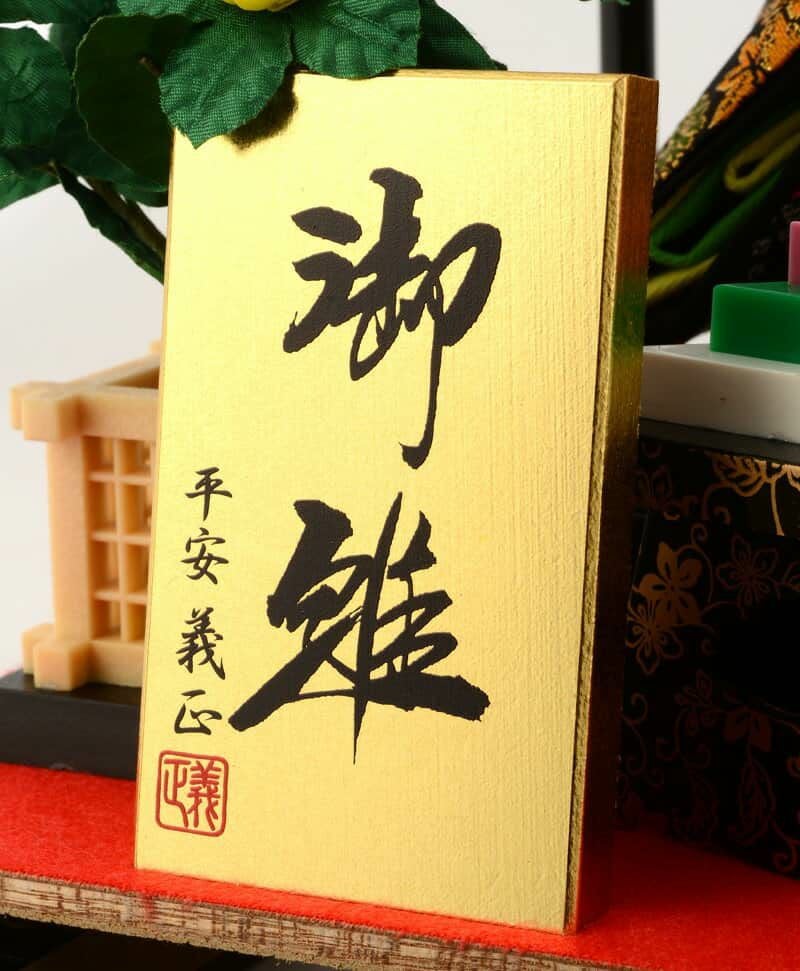 御雛
平安 義正
義正